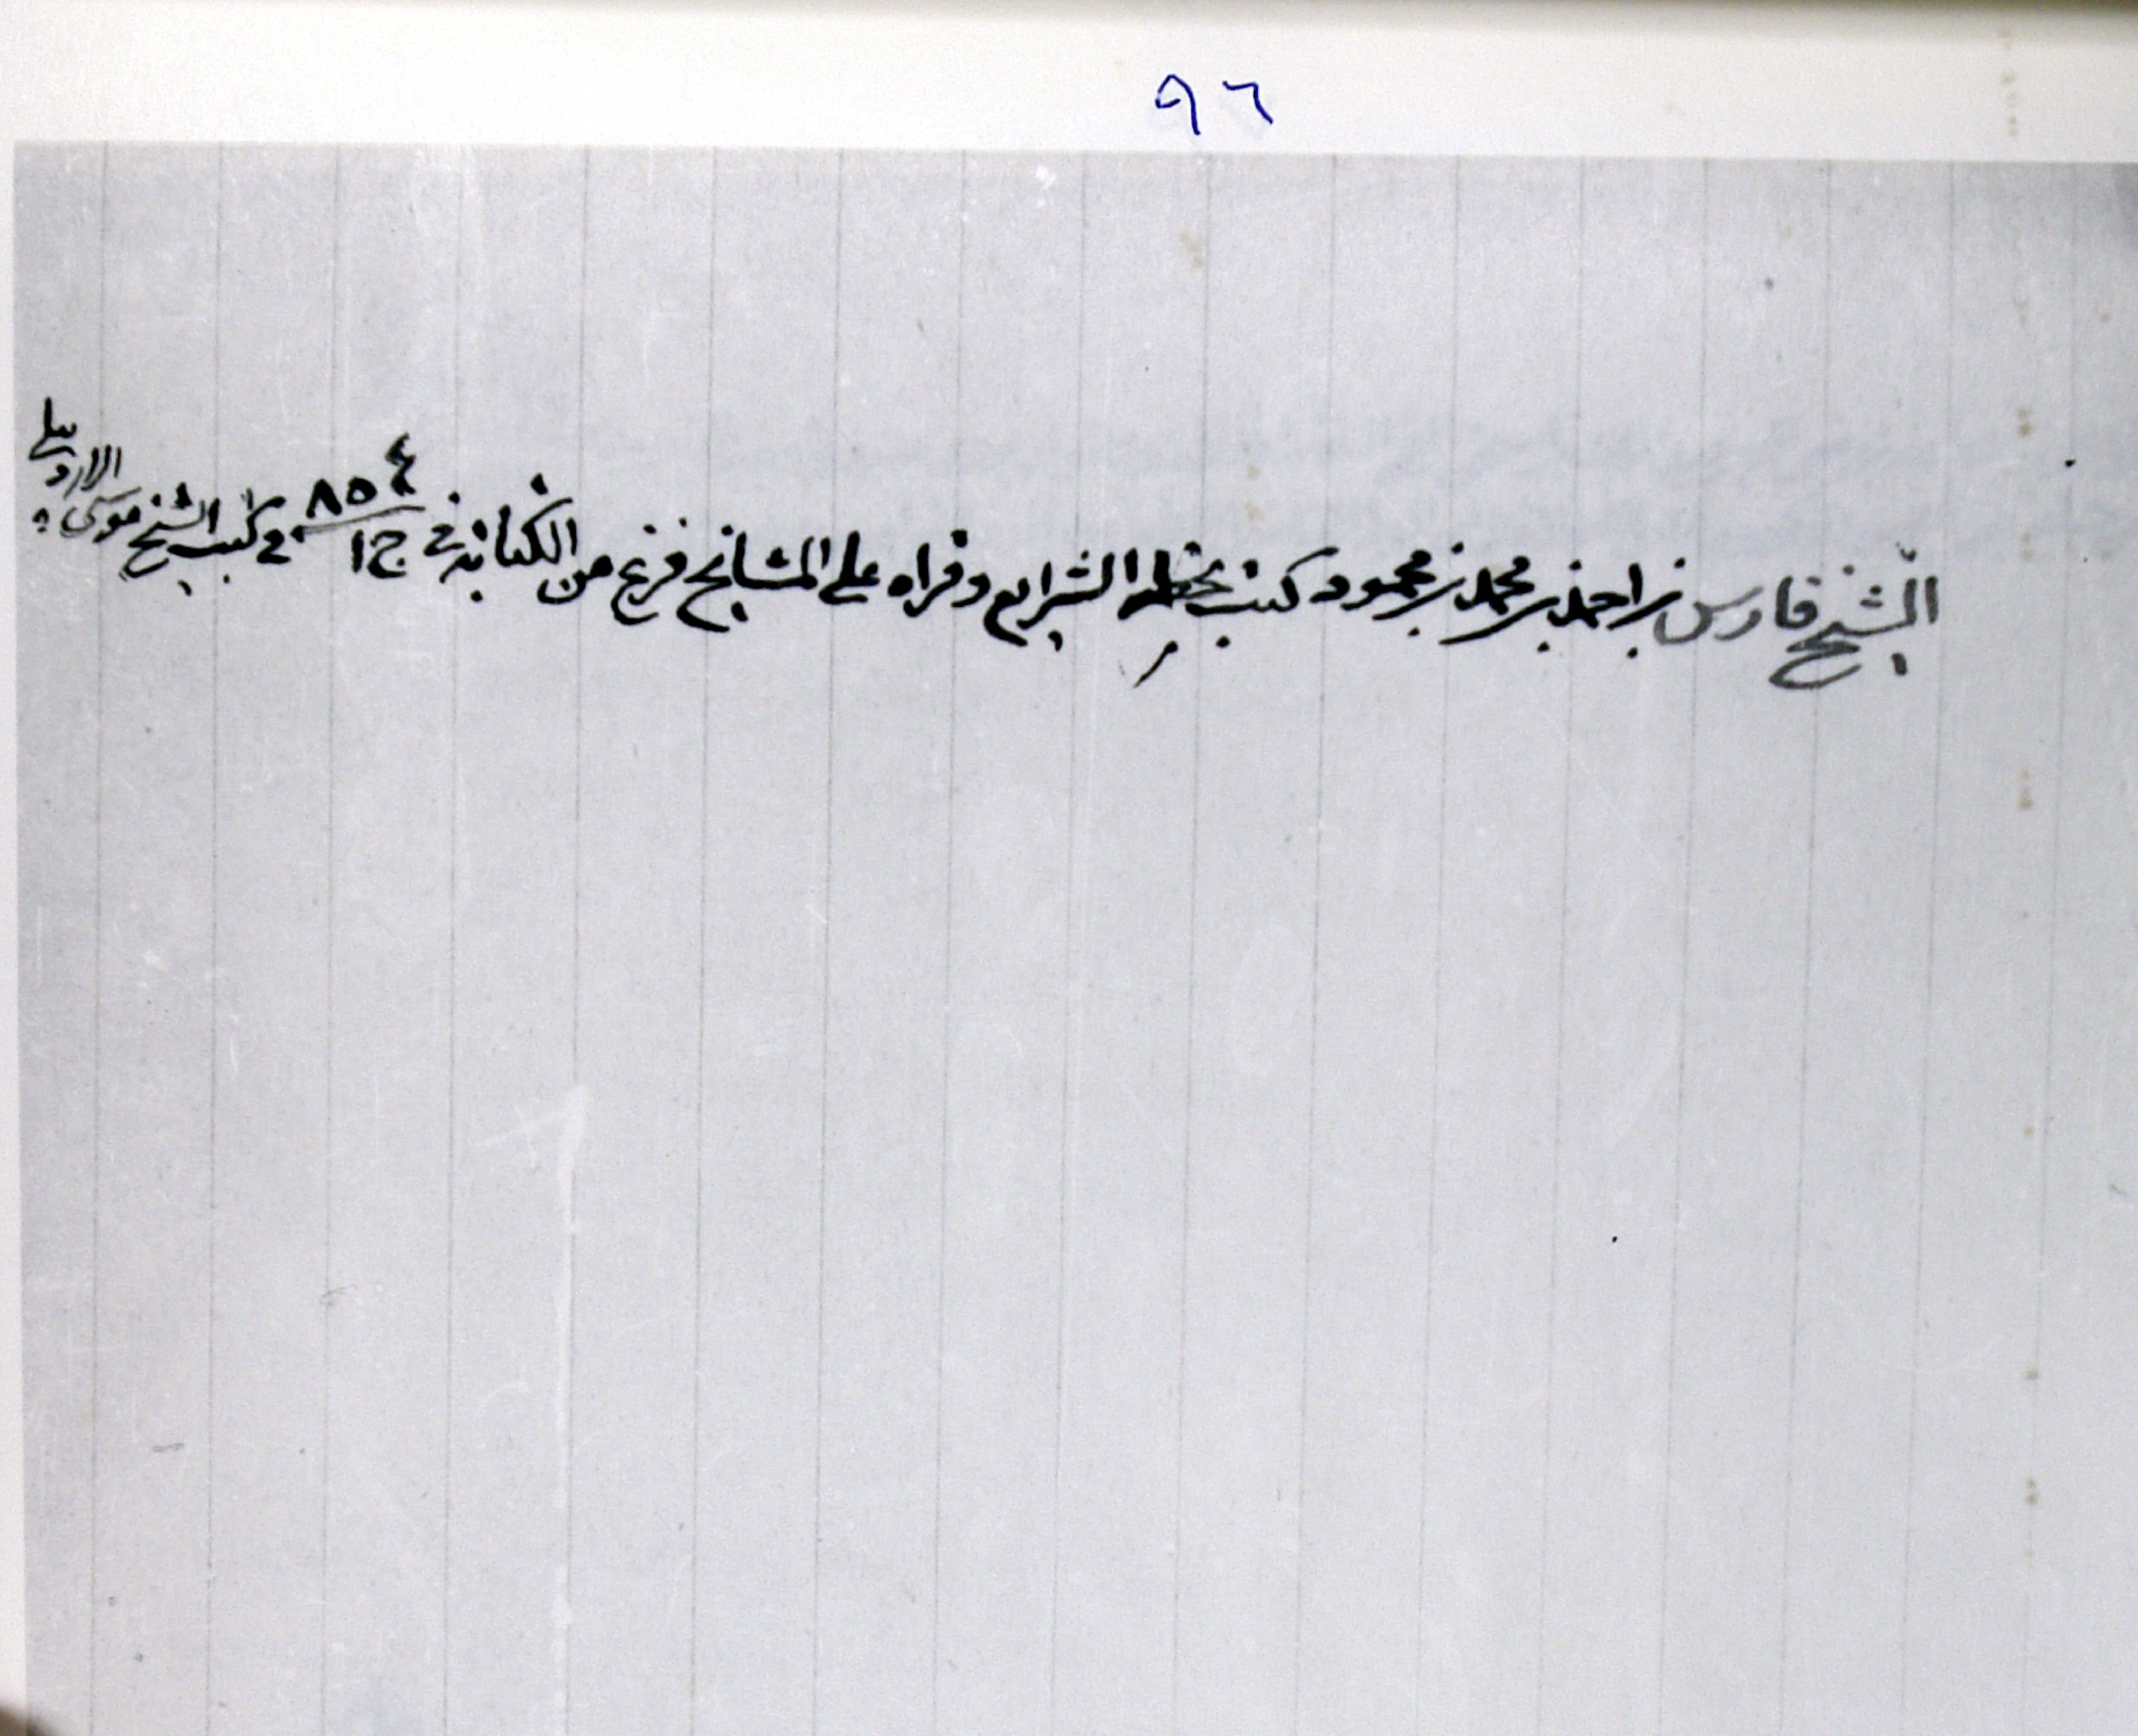 ٩٦
الشيخ فارس بن احمد بن محمد بن محمود كتب بخطه الشرايع وقراه على المشايخ فرغ من الكتابة في ج١ ٨٥٤ في كتب الشيخ موسى الاردبيلي